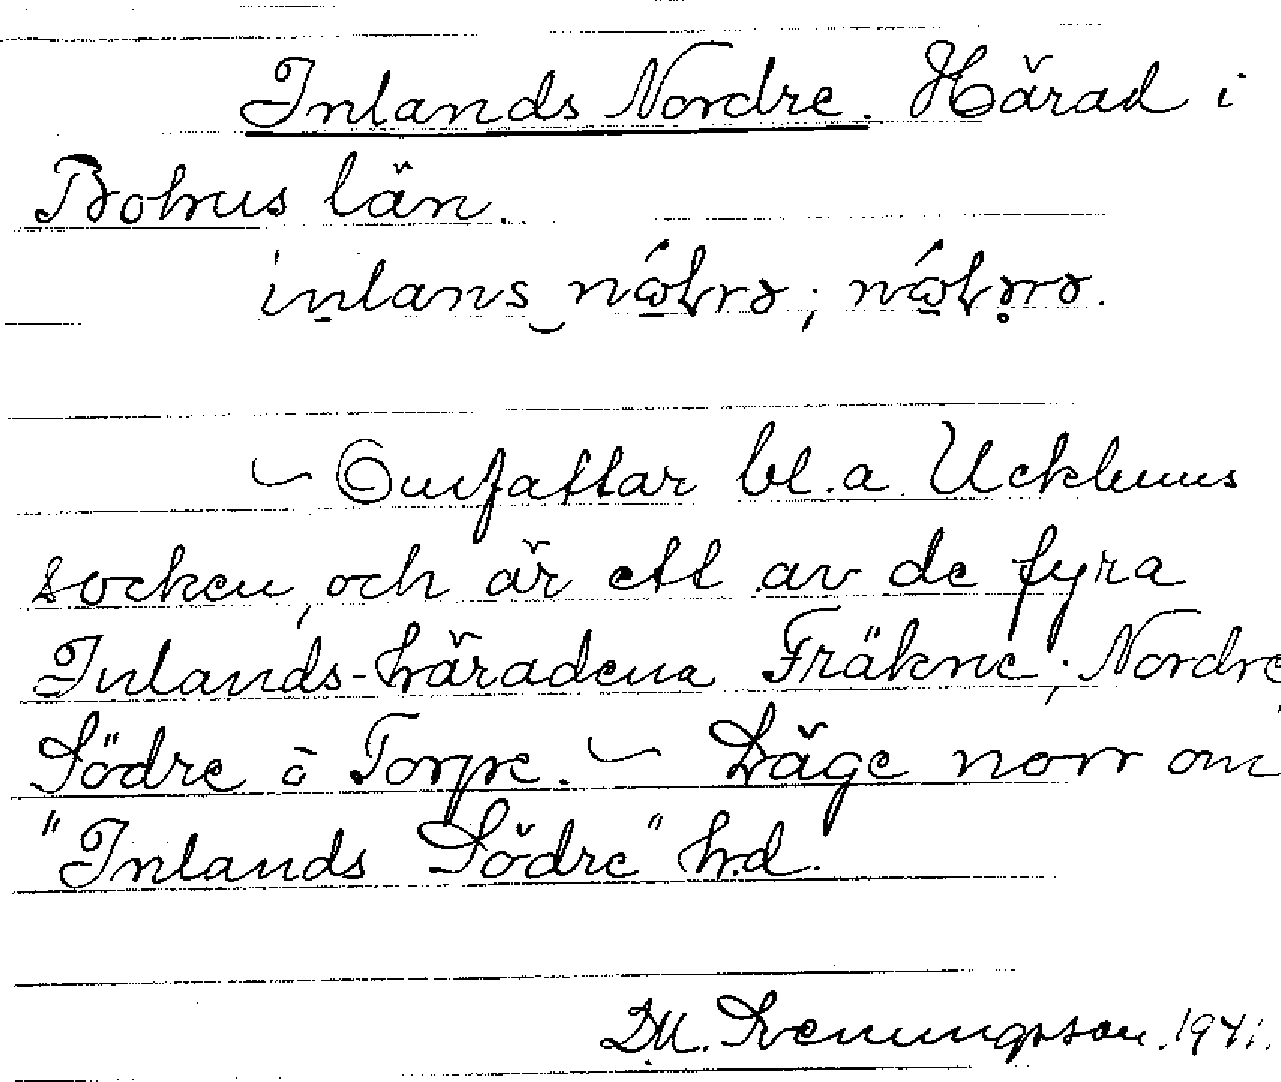 Inlands Nordre. Härad i
Bohus län.
Omfattar bl.a. Ucklums
socken, och är ett av de fyra
Inlands-häradena Fräkne, Nordre,
Södre o Torpe. Läge norr om
"Inlands Södre" hd.
1941.